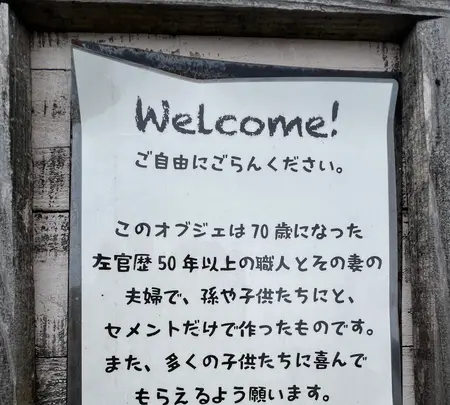 Welcome!
ご自由にごらんください。
このオブジェは70歳になった
左官歴50年以上の職人とその妻の
夫婦で、孫や子供たちにと、
セメントだけで作ったものです。
また、多くの子供たちに喜んで
もらえるよう願います。